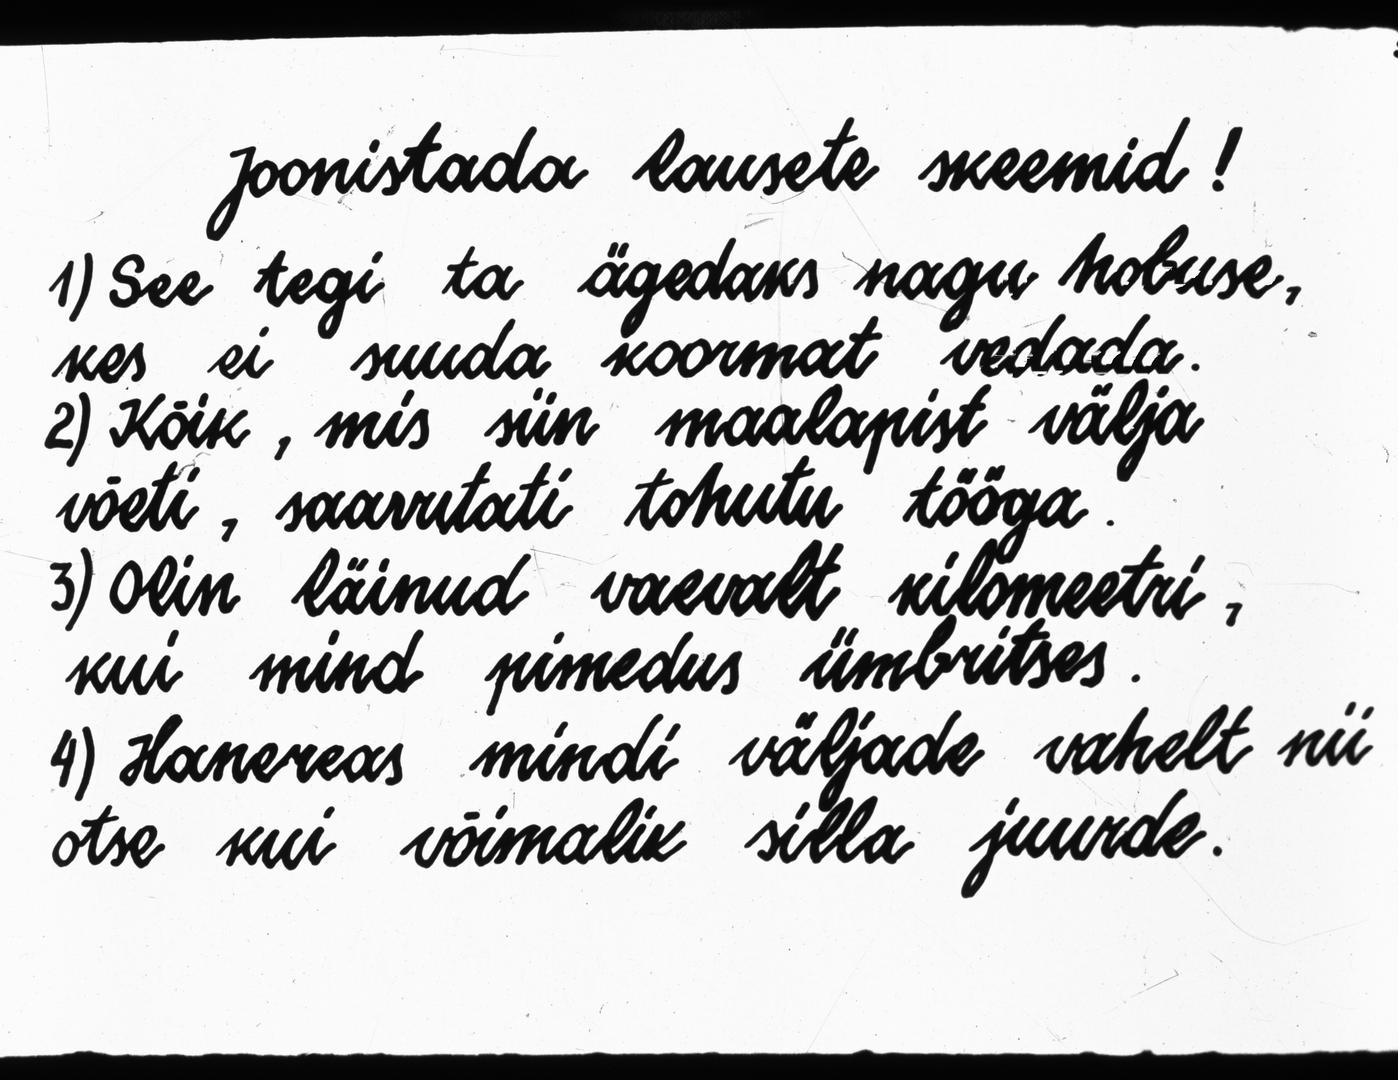 Joonistada lausete skeemid!
1) See tegi ta ägedaks nagu hobuse,
kes ei suuda koormat vedada.
2) Kõik, mis siin maalapist välja
võeti, saavutati tohutu tööga.
3) Olin läinud vaevalt kilomeetri,
kui mind pimedus ümbritses.
4) Hanereas mindi väljade vahelt nii
otse kui võimalik silla juurde.